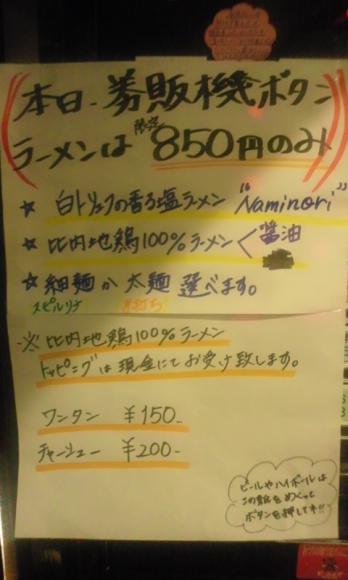 本日、券販機ボタン
ラーメンは 限定 850円のみ
★ 白トリュフの香る塩ラーメン "Naminori"
★ 比内地鶏100%ラーメン< 醤油
★ 細麺か太麺 選べます。
スピルリナ 手打ち
※ 比内地鶏100%ラーメン
トッピングは現金にてお受け致します。
ワンタン ¥150-
チャーシュー ¥200-
ビールやハイボールは
この紙をめくって
ボタンを押してネ!!